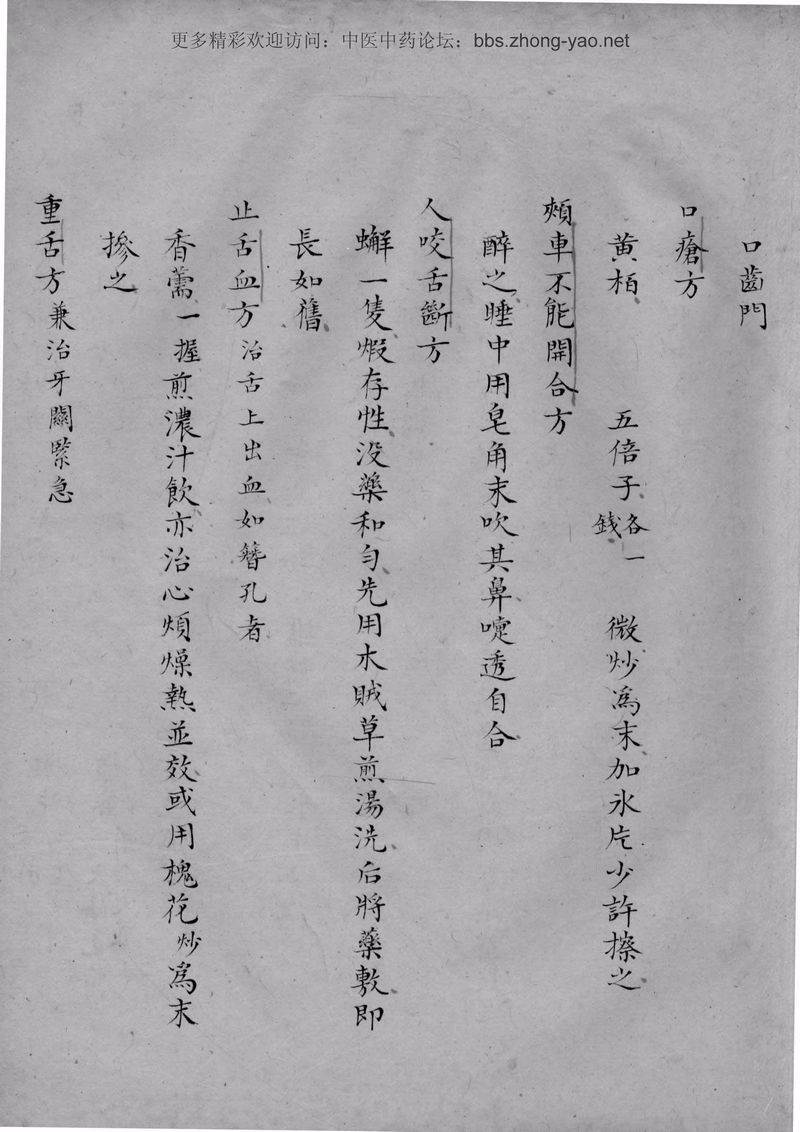 更多精彩欢迎访问：中医中药论坛：bbs.zhong-yao.net
口齒門
口瘡方
黄柏　五倍子各一錢　微炒爲末加氷片少許搽之
頰車不能開合方
醉之睡中用皂角末吹其鼻嚏透自合
人咬舌斷方
蠏一隻煅存性没藥和匀先用木賊草煎湯洗后將藥敷即
長如舊
止舌血方治舌上出血如簪孔者
香薷一握煎濃汁飲亦治心煩燥熱並效或用槐花炒爲末
摻之
重舌方兼治牙關緊急